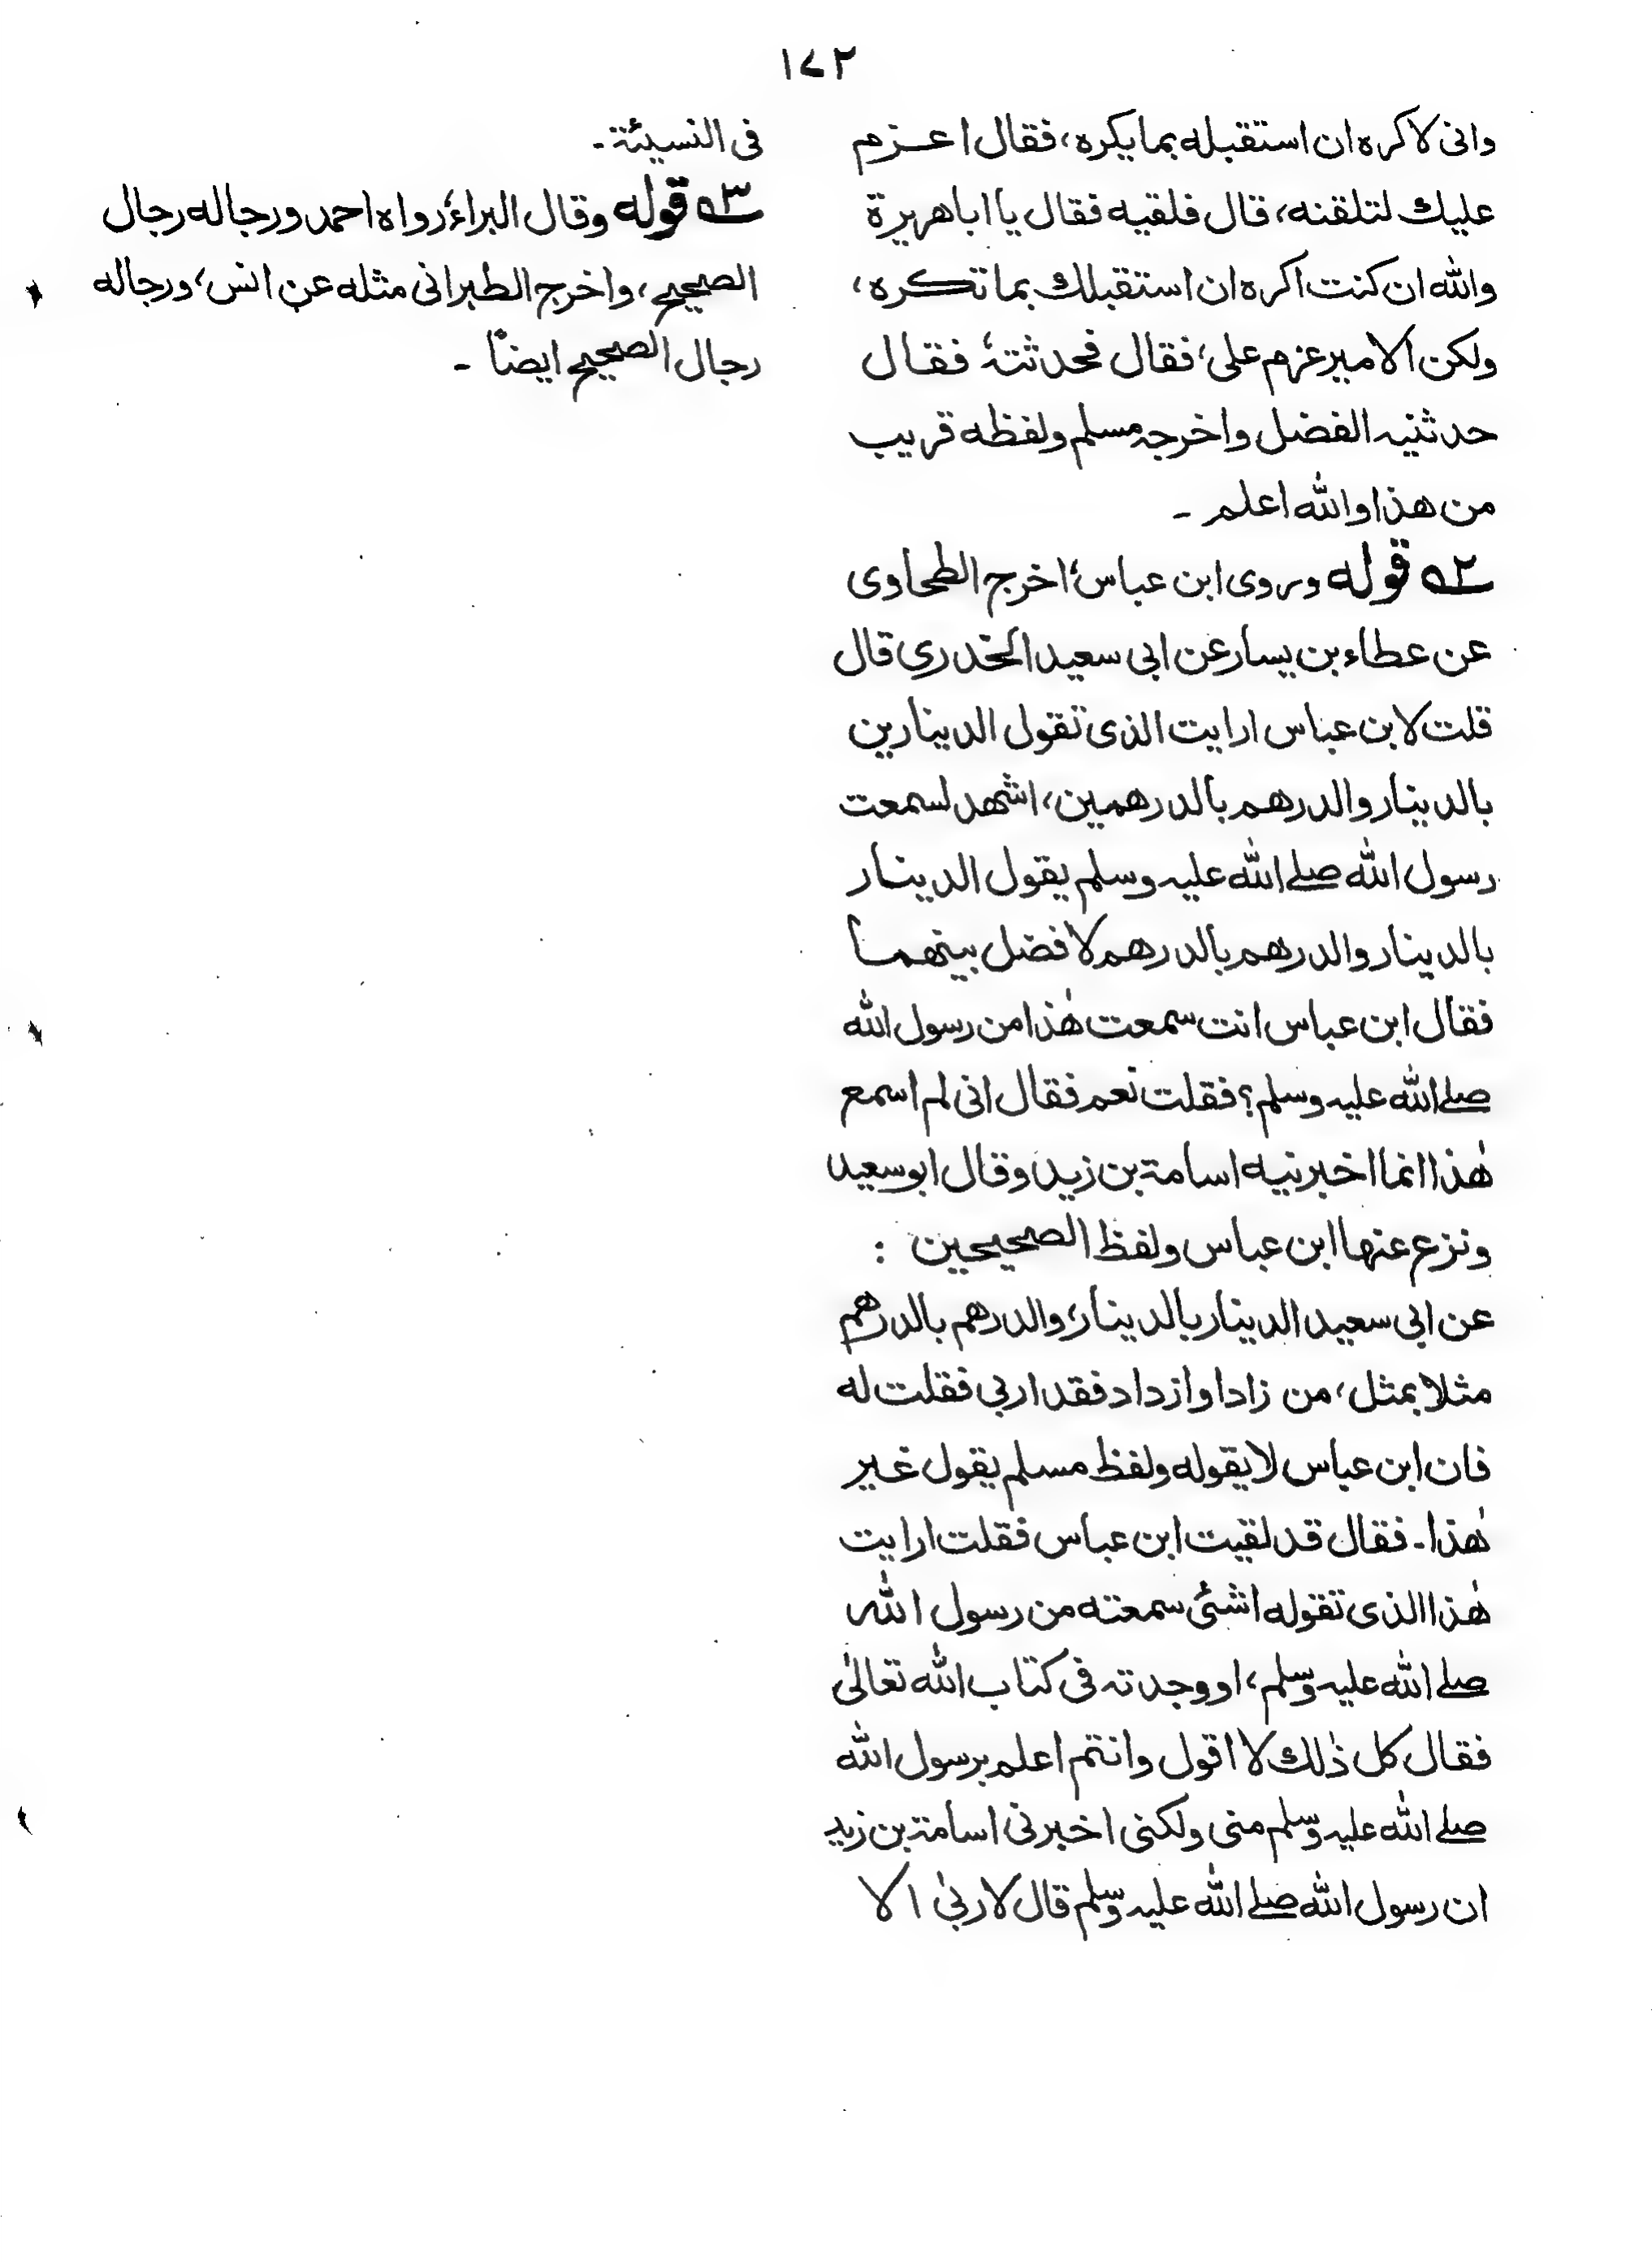 ١٧٢
وانى لاكره ان استقبله بما يكره، فقال اعزم
عليك لتلقنه، قال فلقيه فقال يا ابا هريرة
والله ان كنت اكره ان استقبلك بما تكره،
ولكن الامير عزم على، فقال فحدثته فقال
حدثنيه الفضل واخرجه مسلم ولفظه قريب
من هذا والله اعلم -
٢ه قوله وروى ابن عباس، اخرج الطحاوى
عن عطاء بن يسار عن ابى سعيد الخدرى قال
قلت لابن عباس ارايت الذى تقول الدينارين
بالدينار والدرهم بالدرهمين، اشهد لسمعت
رسول الله صلے الله عليه وسلم يقول الدينار
بالدينار والدرهم بالدرهم لا فضل بينهما
فقال ابن عباس انت سمعت هٰذا من رسول الله
صلے الله عليه وسلم؟ فقلت نعم فقال انى لم اسمع
هٰذا انما اخبرنيه اسامة بن زيد وقال ابو سعيد
ونزع عنها ابن عباس ولفظ الصحيحين :
عن ابى سعيد الدينار بالدينار، والدرهم بالدرهم
مثلا بمثل، من زاد او ازداد فقد اربى فقلت له
فان ابن عباس لا يقوله ولفظ مسلم يقول غير
هٰذا - فقال قد لقيت ابن عباس فقلت ارايت
هٰذا الذى تقوله اشئ سمعته من رسول الله
صلے الله عليه وسلم، او وجدته فى كتاب الله تعالىٰ
فقال كل ذٰلك لا اقول وانتم اعلم برسول الله
صلے الله عليه وسلم منى ولكنى اخبرنى اسامة بن زيد
ان رسول الله صلے الله عليه وسلم قال لا ربىٰ الا
فى النسيئة -
٣ه قوله وقال البراء، رواه احمد ورجاله رجال
الصحيح، واخرج الطبرانى مثله عن انس، ورجاله
رجال الصحيح ايضاً -